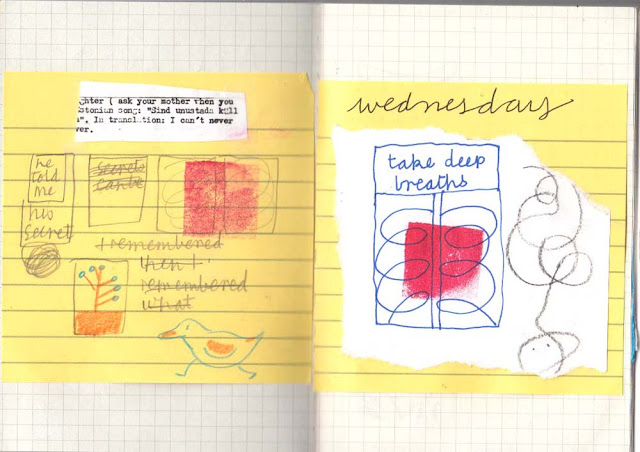 ghter ( ask your mother when you
stonian song: "Sind unustada küll
". In translation: I can't never
ver.
he
told
me
his
secret
secrets
can be
I remembered
then I
remembered
what
wednesday
take deep
breaths